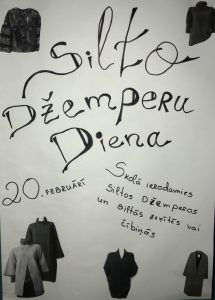 Silto
Džemperu
Diena
20. FEBRUĀRĪ
Skolā ierodamies
siltos Džemperos
un siltās zeķītēs vai
čībiņās